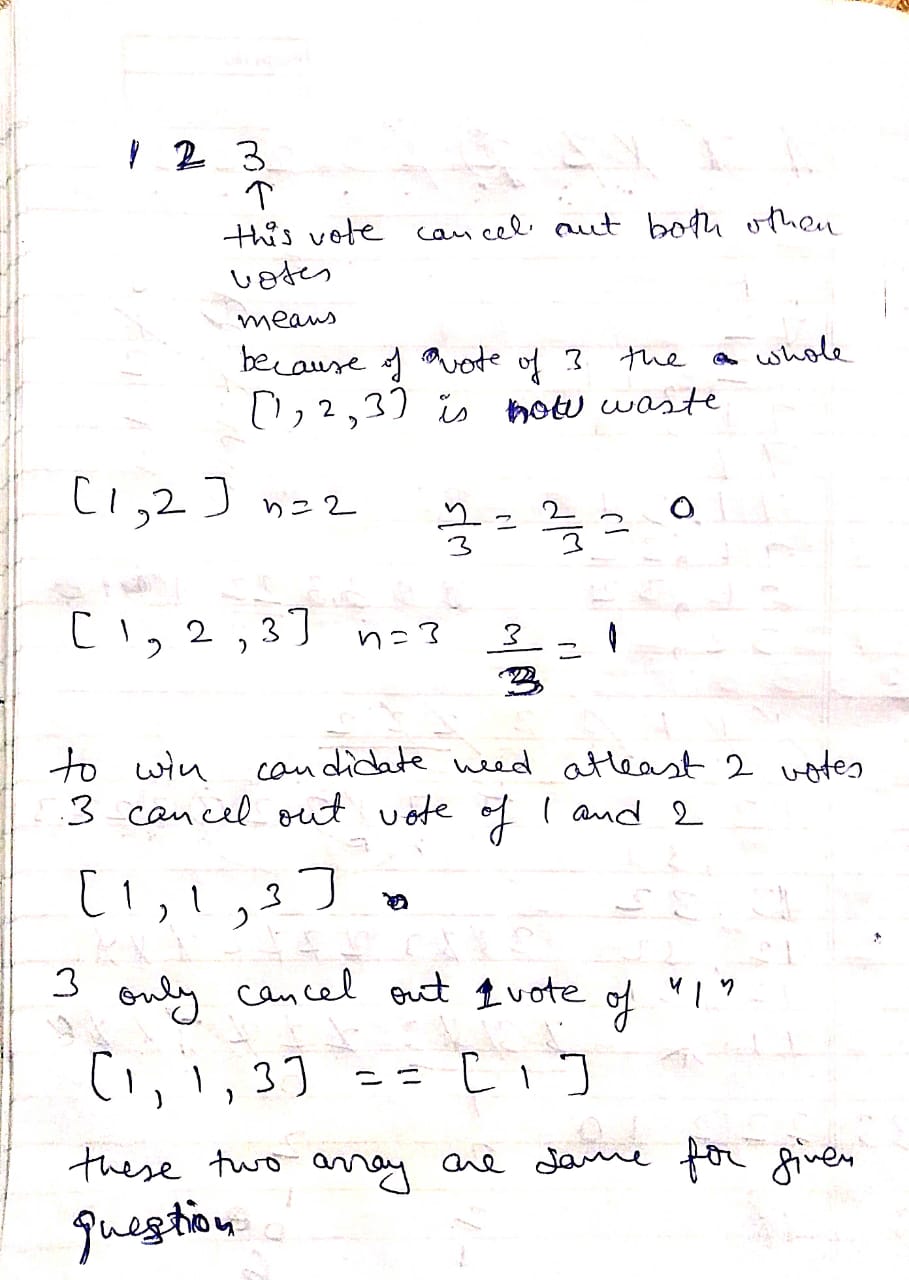 1 2 3
↑
this vote cancel out both other
votes
means
because of vote of 3 the a whole
[1, 2, 3] is now waste
[1, 2] n=2 n/3 = 2/3 = 0
[1, 2, 3] n=3 3/3 = 1
to win candidate need atleast 2 votes
3 cancel out vote of 1 and 2
[1, 1, 3]
3 only cancel out 1 vote of "1"
[1, 1, 3] == [1]
these two array are same for given
question